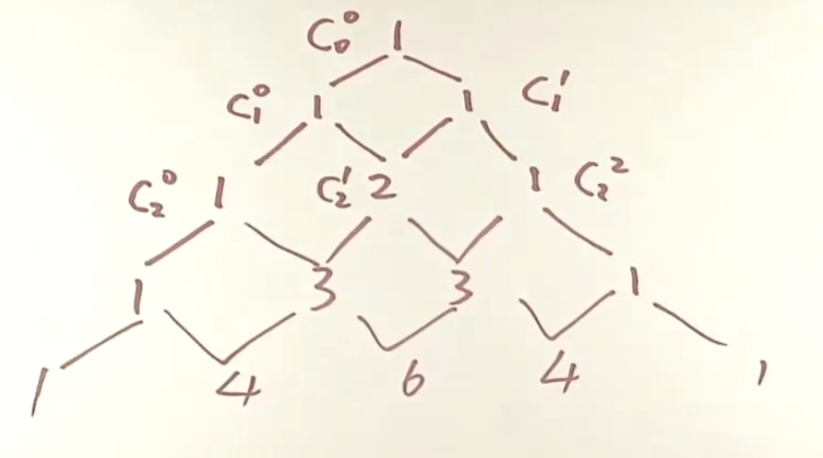 C₀⁰ 1
C₁⁰ 1 1 C₁¹
C₂⁰ 1 C₂¹ 2 1 C₂²
1 3 3 1
1 4 6 4 1